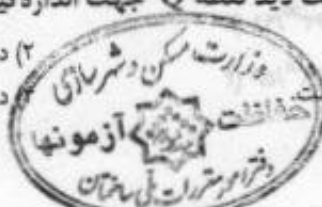 جهت اندازه‌گی
۲) د
وزارت مسکن و شهرسازی
حفاظت آزمونها
دفتر امور مقررات ملی ساختمان